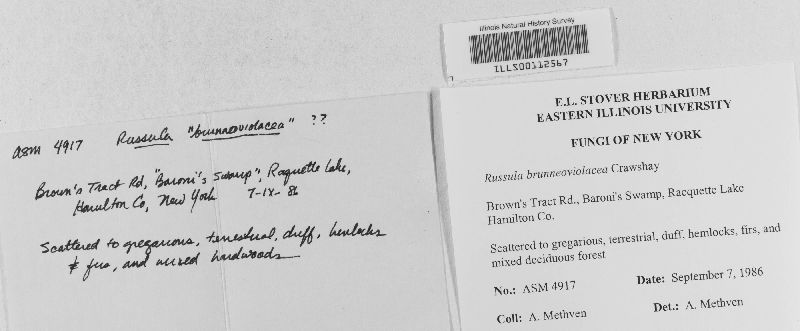 Illinois Natural History Survey
ILLS00112567
ASM 4917 Russula "brunneoviolacea" ??
Brown's Tract Rd, "Baroni's Swamp", Raquette Lake,
Hamilton Co, New York 7-IX-86
Scattered to gregarious, terrestrial, duff, hemlocks
& firs, and mixed hardwoods
E.L. STOVER HERBARIUM
EASTERN ILLINOIS UNIVERSITY
FUNGI OF NEW YORK
Russula brunneoviolacea Crawshay
Brown's Tract Rd., Baroni's Swamp, Racquette Lake
Hamilton Co.
Scattered to gregarious, terrestrial, duff, hemlocks, firs, and
mixed deciduous forest
No.: ASM 4917 Date: September 7, 1986
Coll: A. Methven Det.: A. Methven